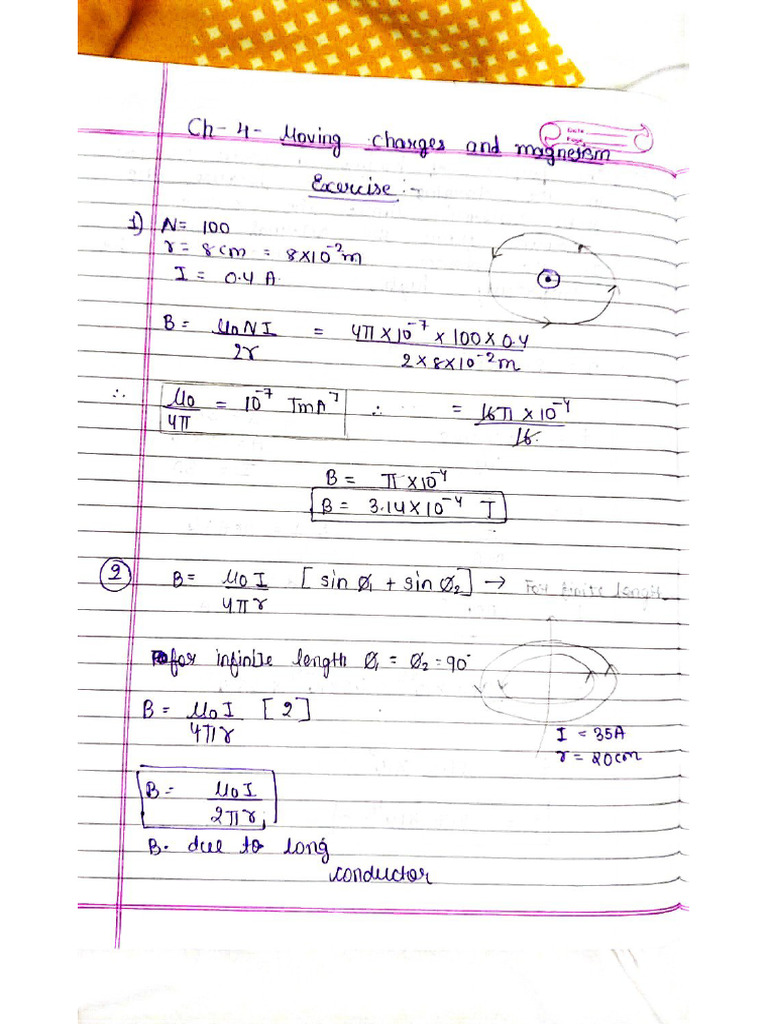 Ch-4- Moving charges and magnetism
Exercise :-
1) N= 100
r= 8cm = 8×10⁻²m
I = 0.4 A.
B = μ₀NI / 2r = 4π×10⁻⁷ × 100×0.4 / 2×8×10⁻²m
∴ μ₀ / 4π = 10⁻⁷ TmA⁻¹ ∴ = 16π × 10⁻⁴ / 16.
B = π×10⁻⁴
B = 3.14×10⁻⁴ T
2 B= μ₀I / 4πr [sin Ø₁ + sin Ø₂] → For finite length
for infinite length Ø₁ = Ø₂ = 90°
B = μ₀I / 4πr [2]
I = 35A
r = 20cm
B = μ₀I / 2πr,
B. due to long
conductor